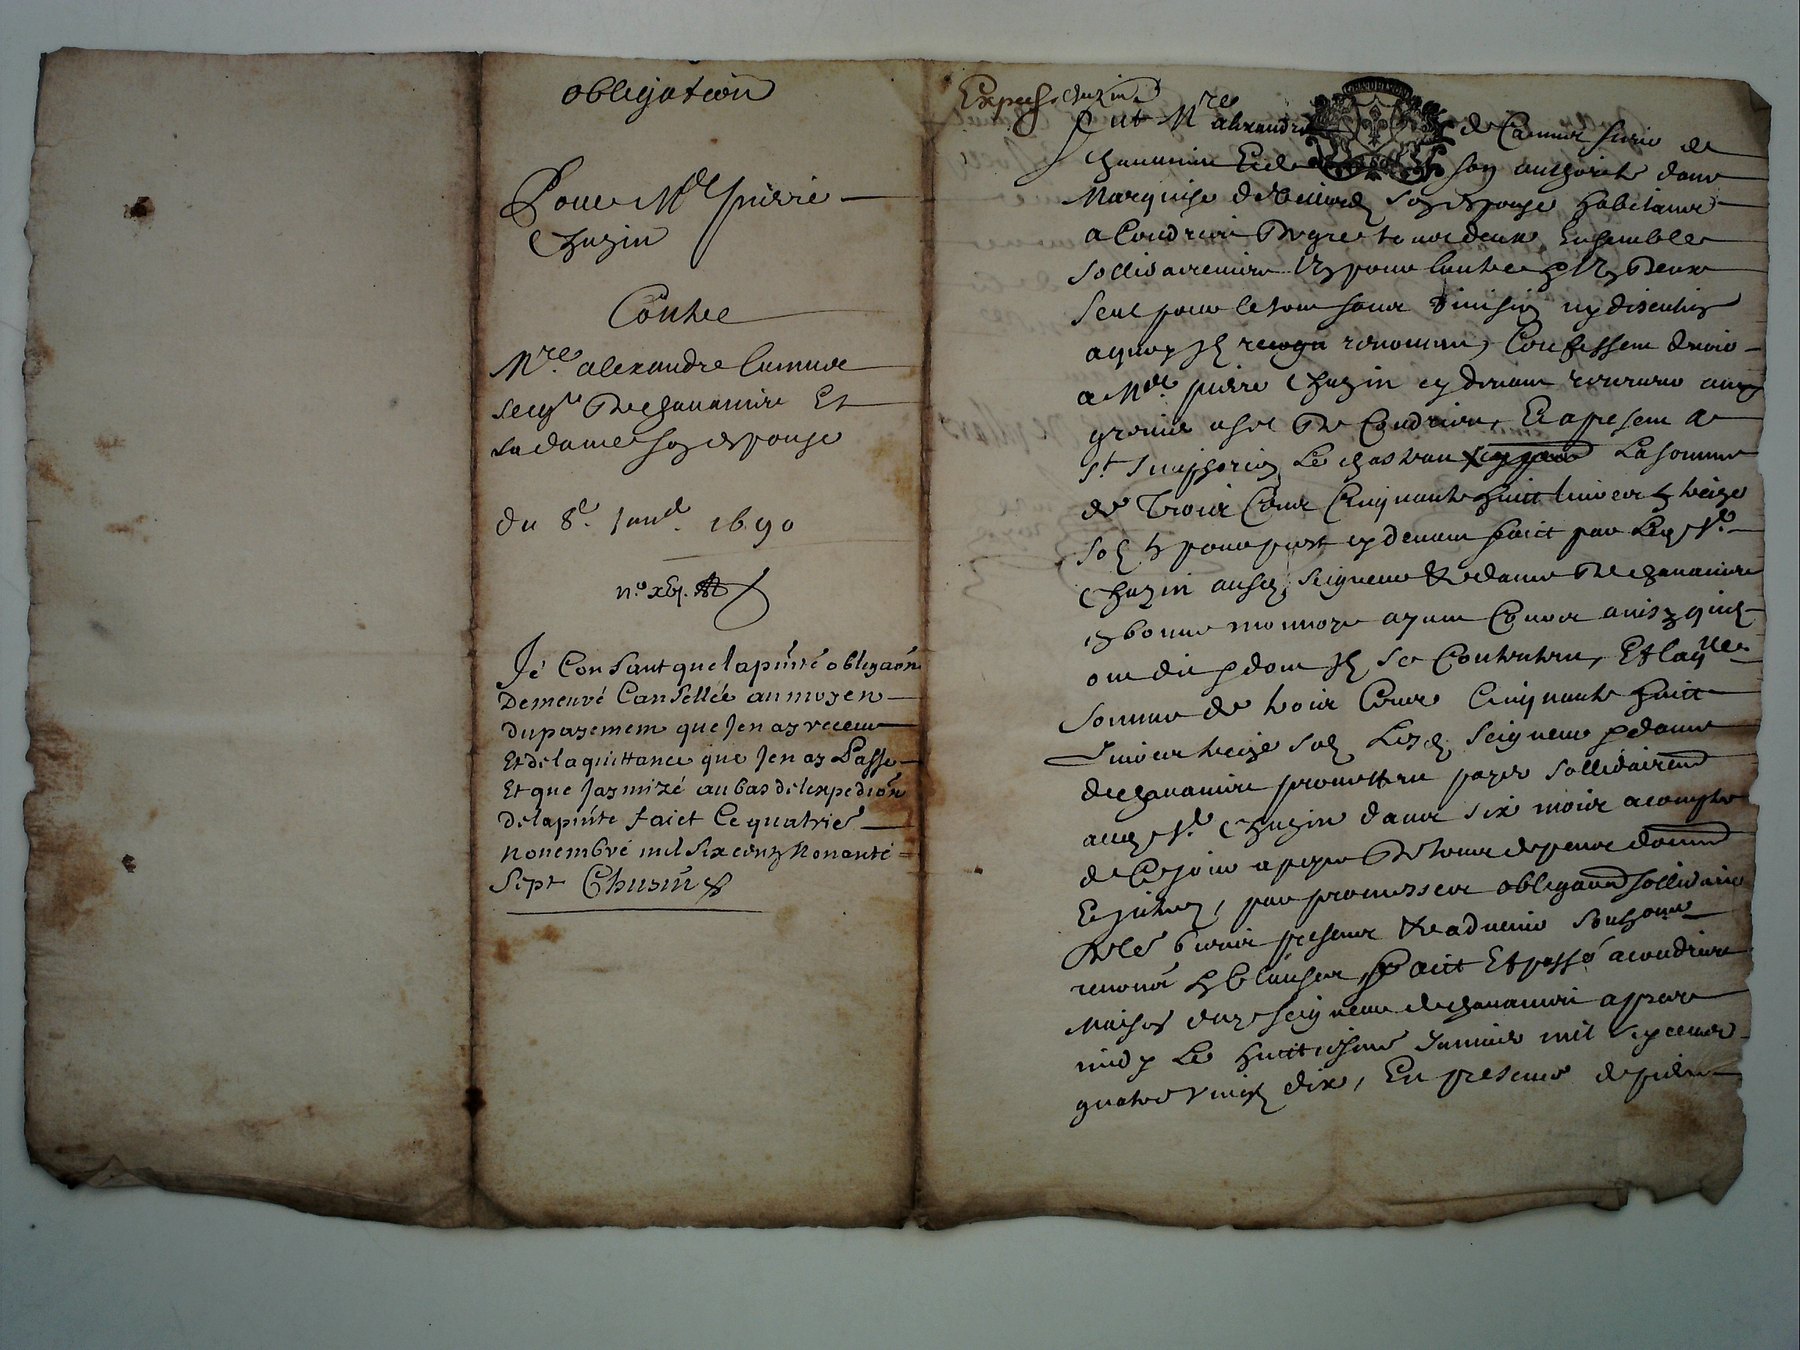 obligation
Pour Me pierre
Chuzin
Contre
Mre alexandre Camus
seigr De chavanire Et
La dame son espouse
du 8e Janer 1690
no xvj.
Je Consant que la pnte obligaon
Demeure Cansellée au moyen
du payement que Jen ay receu
Et de la quittance que Jen ay Passe
Et que Jay mizé au bas de lexpedion
de la pnte faict Ce quatrie
novembre mil six centz nonante
sept Chusin
Exped. chuzin
Fut Mre alexandre de Camus sieur de
authorité dame
Marquise de son espouse habitans
a Condrieu De gré tous deux Ensemble
sollidairement Un pour lautre & Un Deux
seul pour le tout sans division ny discution
a quoy Ilz renoncent, Confessent devoir
a Me pierre Chuzin cy devant receveur au
grenier a sel De Condrieu, Et a present a
St Simphorien Le chasteau La somme
de Trois Cens Cinquante huict livres treize
solz pour prest cy devant faict par Led Sr
Chuzin ausd. seigneur & dame De chavanire
en bonne monnoye ayant Cours ainsy quilz
ont dit & dont Ilz se Contentent, Et laqlle
somme de trois Cens Cinquante huict
Livres treize solz Lesd. seigneur & dame
de chavanire promettent payer sollidairemt
aud Sr Chuzin dans six mois a compter
de Ce jour a peyne De tous despens domages
Et intez, par promesses obligaon sollidaire
De le biens presens & advenir
renonon & Clauses, faict Et passé a condrieu
Maison dud seigneur de chavanire appres
midy Le huictiesme Janvier mil six cens
quatre vingtz dix, En presence de pierre